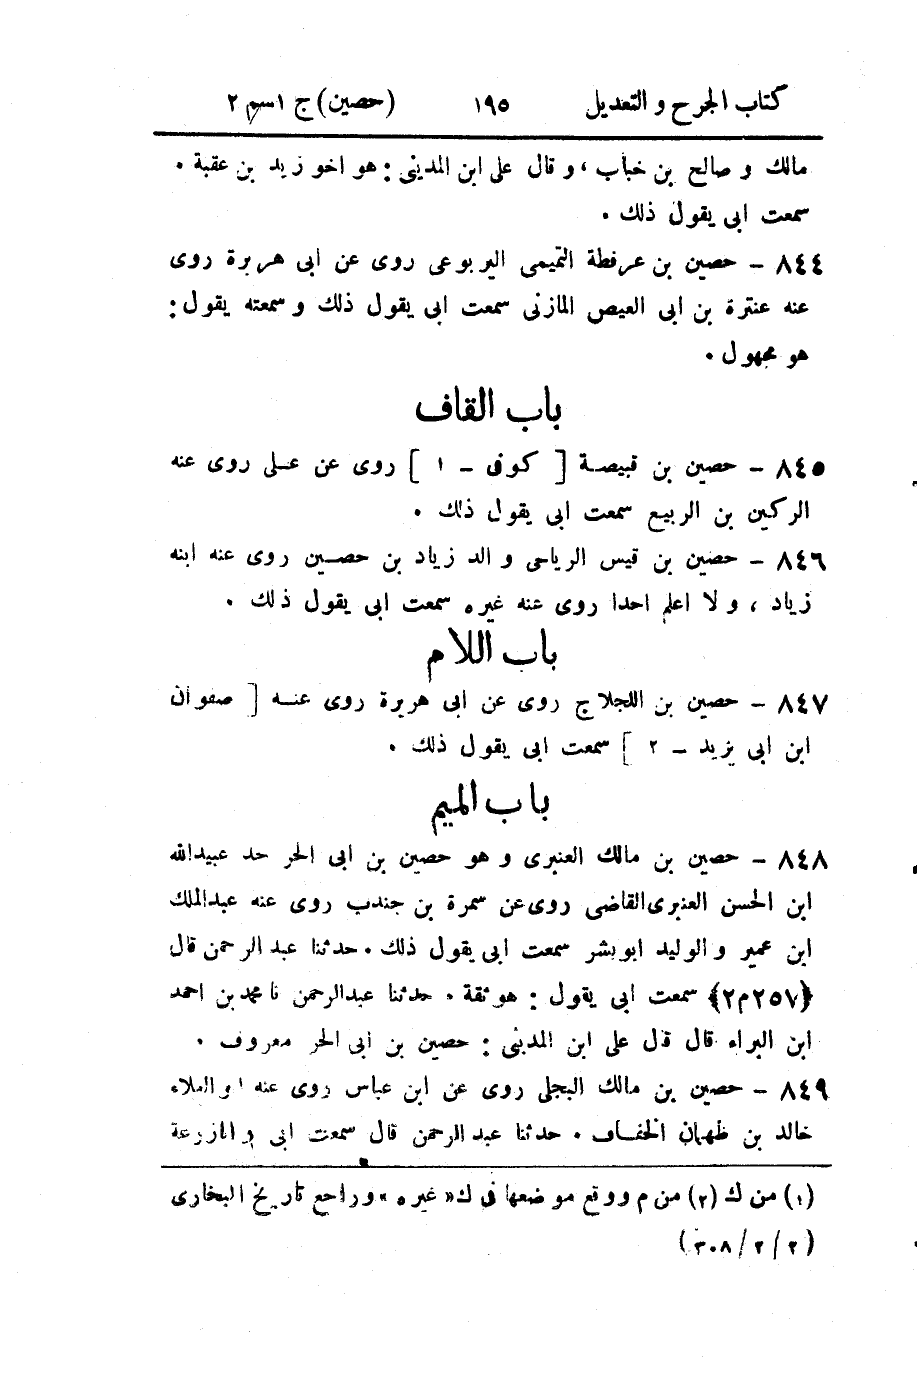 كتاب الجرح و التعديل ١٩٥ (حصين) ج ١ قسم ٢
مالك و صالح بن خباب ، و قال على ابن المدينى : هو اخو زيد بن عقبة .
سمعت ابى يقول ذلك .
٨٤٤ - حصين بن عرفطة التميمى اليربوعى روى عن ابى هريرة روى
عنه عنترة بن ابى العيص المازنى سمعت ابى يقول ذلك و سمعته يقول :
هو مجهول .
باب القاف
٨٤٥ - حصين بن قبيصة [ كوفى - ١ ] روى عن على روى عنه
الركين بن الربيع سمعت ابى يقول ذلك .
٨٤٦ - حصين بن قيس الرياحى و الد زياد بن حصين روى عنه ابنه
زياد ، و لا اعلم احدا روى عنه غيره سمعت ابى يقول ذلك .
باب اللام
٨٤٧ - حصين بن اللجلاج روى عن ابى هريرة روى عنه [ صفوان
ابن ابى يزيد - ٢ ] سمعت ابى يقول ذلك .
باب الميم
٨٤٨ - حصين بن مالك العنبرى و هو حصين بن ابى الحر جد عبيدالله
ابن الحسن العنبرى القاضى روى عن سمرة بن جندب روى عنه عبدالملك
ابن عمير و الوليد ابو بشر سمعت ابى يقول ذلك . حدثنا عبد الرحمن قال
﴿٢٥٧م٢﴾ سمعت ابى يقول : هو ثقة . حدثنا عبدالرحمن نا محمد بن احمد
ابن البراء قال قال على ابن المدينى : حصين بن ابى الحر معروف .
٨٤٩ - حصين بن مالك البجلى روى عن ابن عباس روى عنه ابو العلاء
خالد بن طهمان الخفاف . حدثنا عبد الرحمن قال سمعت ابى و ابازرعة
(١) من ك (٢) من م ووقع موضعها فى ك « غيره » وراجع تاريخ البخارى
(٢ / ٢ / ٣٠٨)